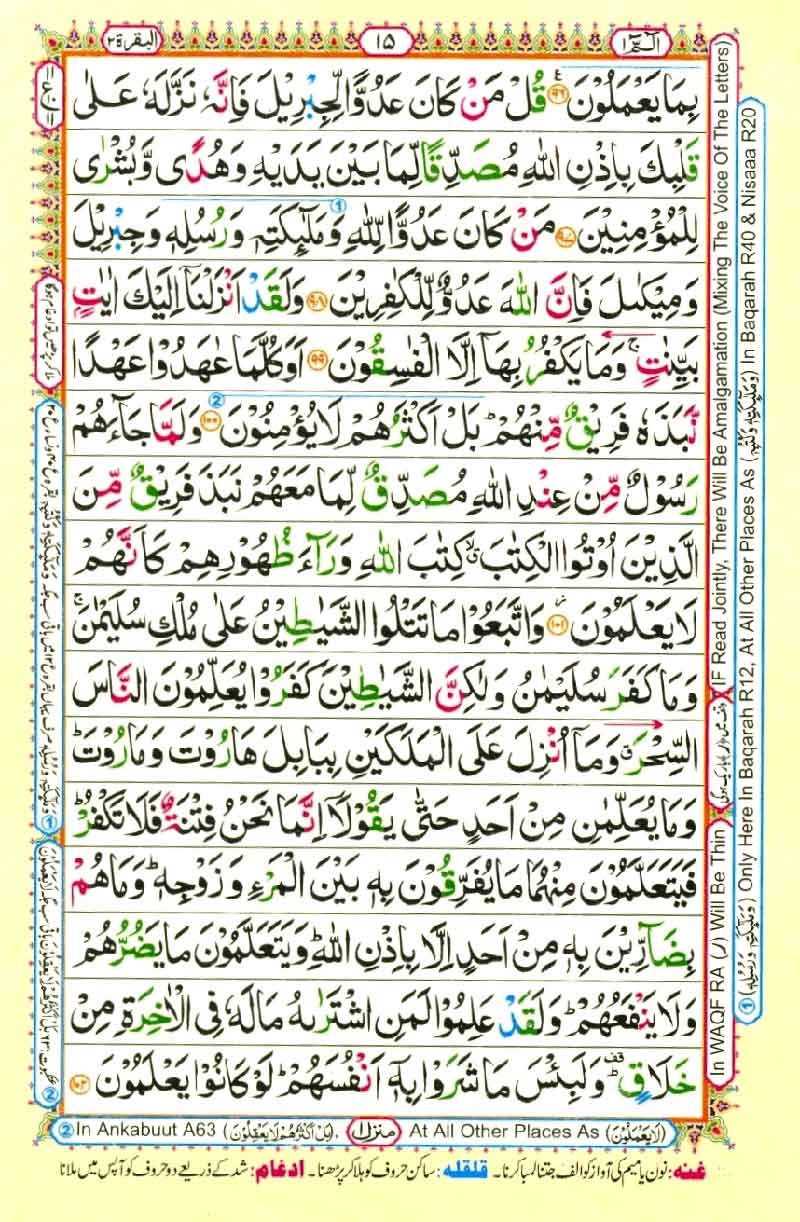 الٓمّٓ ١
١٥
البقرة ٢
بِمَا يَعْمَلُوْنَ ﴿٩٦﴾ قُلْ مَنْ كَانَ عَدُوًّا لِّجِبْرِيْلَ فَاِنَّهٗ نَزَّلَهٗ عَلٰى
قَلْبِكَ بِاِذْنِ اللّٰهِ مُصَدِّقًا لِّمَا بَيْنَ يَدَيْهِ وَهُدًى وَّبُشْرٰى
لِلْمُؤْمِنِيْنَ ﴿٩٧﴾ مَنْ كَانَ عَدُوًّا لِّلّٰهِ وَمَلٰٓئِكَتِهٖ وَرُسُلِهٖ وَجِبْرِيْلَ
وَمِيْكٰىلَ فَاِنَّ اللّٰهَ عَدُوٌّ لِّلْكٰفِرِيْنَ ﴿٩٨﴾ وَلَقَدْ اَنْزَلْنَآ اِلَيْكَ اٰيٰتٍۭ
بَيِّنٰتٍ ۚ وَمَا يَكْفُرُ بِهَآ اِلَّا الْفٰسِقُوْنَ ﴿٩٩﴾ اَوَكُلَّمَا عٰهَدُوْا عَهْدًا
نَّبَذَهٗ فَرِيْقٌ مِّنْهُمْ ؕ بَلْ اَكْثَرُهُمْ لَا يُؤْمِنُوْنَ ﴿١٠٠﴾ وَلَمَّا جَآءَهُمْ
رَسُوْلٌ مِّنْ عِنْدِ اللّٰهِ مُصَدِّقٌ لِّمَا مَعَهُمْ نَبَذَ فَرِيْقٌ مِّنَ
الَّذِيْنَ اُوْتُوا الْكِتٰبَ ۙ كِتٰبَ اللّٰهِ وَرَآءَ ظُهُوْرِهِمْ كَاَنَّهُمْ
لَا يَعْلَمُوْنَ ﴿١٠١﴾ وَاتَّبَعُوْا مَا تَتْلُوا الشَّيٰطِيْنُ عَلٰى مُلْكِ سُلَيْمٰنَ ۚ
وَمَا كَفَرَ سُلَيْمٰنُ وَلٰكِنَّ الشَّيٰطِيْنَ كَفَرُوْا يُعَلِّمُوْنَ النَّاسَ
السِّحْرَ ۗ وَمَآ اُنْزِلَ عَلَى الْمَلَكَيْنِ بِبَابِلَ هَارُوْتَ وَمَارُوْتَ ؕ
وَمَا يُعَلِّمٰنِ مِنْ اَحَدٍ حَتّٰى يَقُوْلَآ اِنَّمَا نَحْنُ فِتْنَةٌ فَلَا تَكْفُرْ ؕ
فَيَتَعَلَّمُوْنَ مِنْهُمَا مَا يُفَرِّقُوْنَ بِهٖ بَيْنَ الْمَرْءِ وَزَوْجِهٖ ؕ وَمَا هُمْ
بِضَآرِّيْنَ بِهٖ مِنْ اَحَدٍ اِلَّا بِاِذْنِ اللّٰهِ ؕ وَيَتَعَلَّمُوْنَ مَا يَضُرُّهُمْ
وَلَا يَنْفَعُهُمْ ؕ وَلَقَدْ عَلِمُوْا لَمَنِ اشْتَرٰىهُ مَا لَهٗ فِى الْاٰخِرَةِ مِنْ
خَلَاقٍ ؕ وَلَبِئْسَ مَا شَرَوْا بِهٖٓ اَنْفُسَهُمْ ؕ لَوْ كَانُوْا يَعْلَمُوْنَ ﴿١٠٢﴾
In WAQF RA (ر) Will Be Thin
IF Read Jointly, There Will Be Amalgamation (Mixing The Voice Of The Letters)
① (وَمَلٰٓئِكَتِهٖ وَرُسُلِهٖ) Only Here In Baqarah R12, At All Other Places As (وَمَلٰٓئِكَتِهٖ وَكُتُبِهٖ) In Baqarah R40 & Nisaaa R20
② In Ankabuut A63 (بَلْ اَكْثَرُهُمْ لَا يَعْقِلُوْنَ), منزل ١ At All Other Places As (لَا يَعْلَمُوْنَ)
غنه: نون یا میم کی آواز کو الف جتنا لمبا کرنا۔ قلقله: ساکن حروف کو ہلا کر پڑھنا۔ ادغام: شد کے ذریعے دو حروف کو آپس میں ملانا